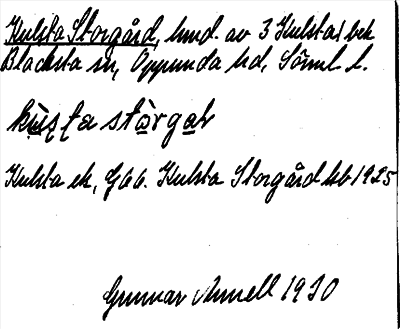 Kulsta Storgård, hmd. av 3 Kulsta i bek
Blacksta sn, Oppunda hd, Söml l.
kùsta stòrgaɽ
Kulsta ek, G66. Kulsta Storgård kb 1925
Gunnar Annell 1930